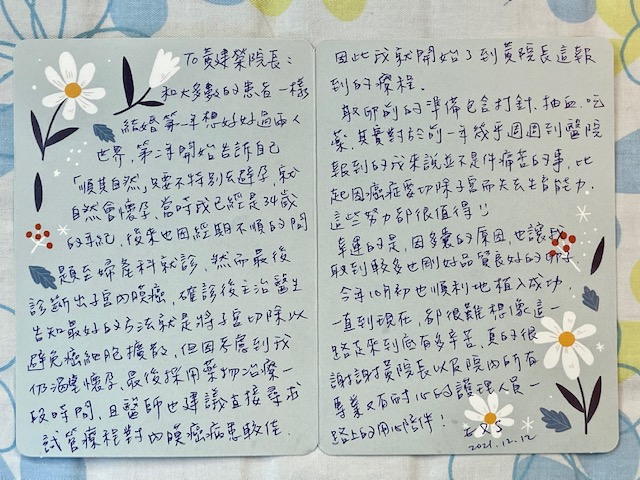 To 黃建榮院長：
和大多數的患者一樣
結婚第一年想好好過兩人
世界，第二年開始告訴自己
「順其自然」只要不特別去避孕，就
自然會懷孕，當時我已經是34歲
的年紀，後來也因經期不順的問
題至婦產科就診，然而最後
診斷出子宮內膜癌，確診後主治醫生
告知最好的方法就是將子宮切除以
避免癌細胞擴散，但因考慮到我
仍渴望懷孕，最後採用藥物治療一
段時間，且醫師也建議直接尋求
試管療程對內膜癌病患較佳．
因此我就開始了到黃院長這報
到的療程．
取卵前的準備包含打針、抽血、吃
藥，其實對於前一年幾乎週週到醫院
報到的我來說並不是件痛苦的事，比
起因癌症要切除子宮而失去生育能力，
這些努力都很值得!!
幸運的是，因多囊的原因，也讓我
取到較多也剛好品質良好的卵子
今年10月初也順利地植入成功，
一直到現在，都很難想像這一
路走來到底有多辛苦，真的很
謝謝黃院長以及院內所有
專業又有耐心的護理人員一
路上的用心陪伴！
2021.12.12